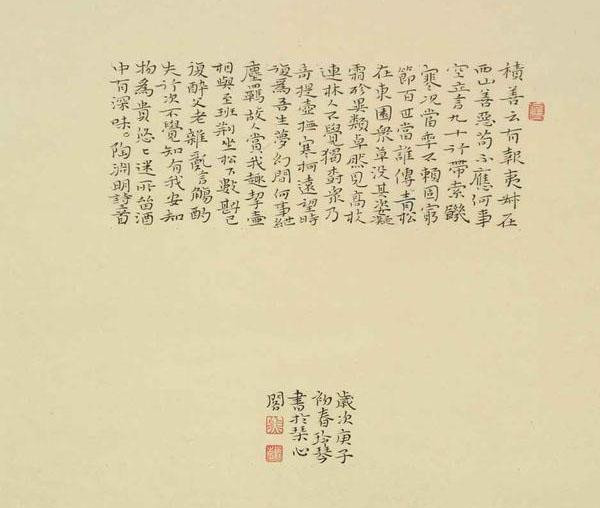 積善云有報夷叔在
西山善惡苟不應何事
空立言九十行帶索饑
寒况當年不賴固窮
節百世當誰傳青松
在東園衆草沒其姿凝
霜殄異類卓然見高枝
連林人不覺獨樹衆乃
奇提壺撫寒柯遠望時
復爲吾生夢幻間何事紲
塵羈故人賞我趣挈壺
相與至班荆坐松下數斟已
復醉父老雜亂言觴酌
失行次不覺知有我安知
物爲貴悠々迷所留酒
中有深味。陶淵明詩三首
歲次庚子
初春玲琴
書於琹心
閣